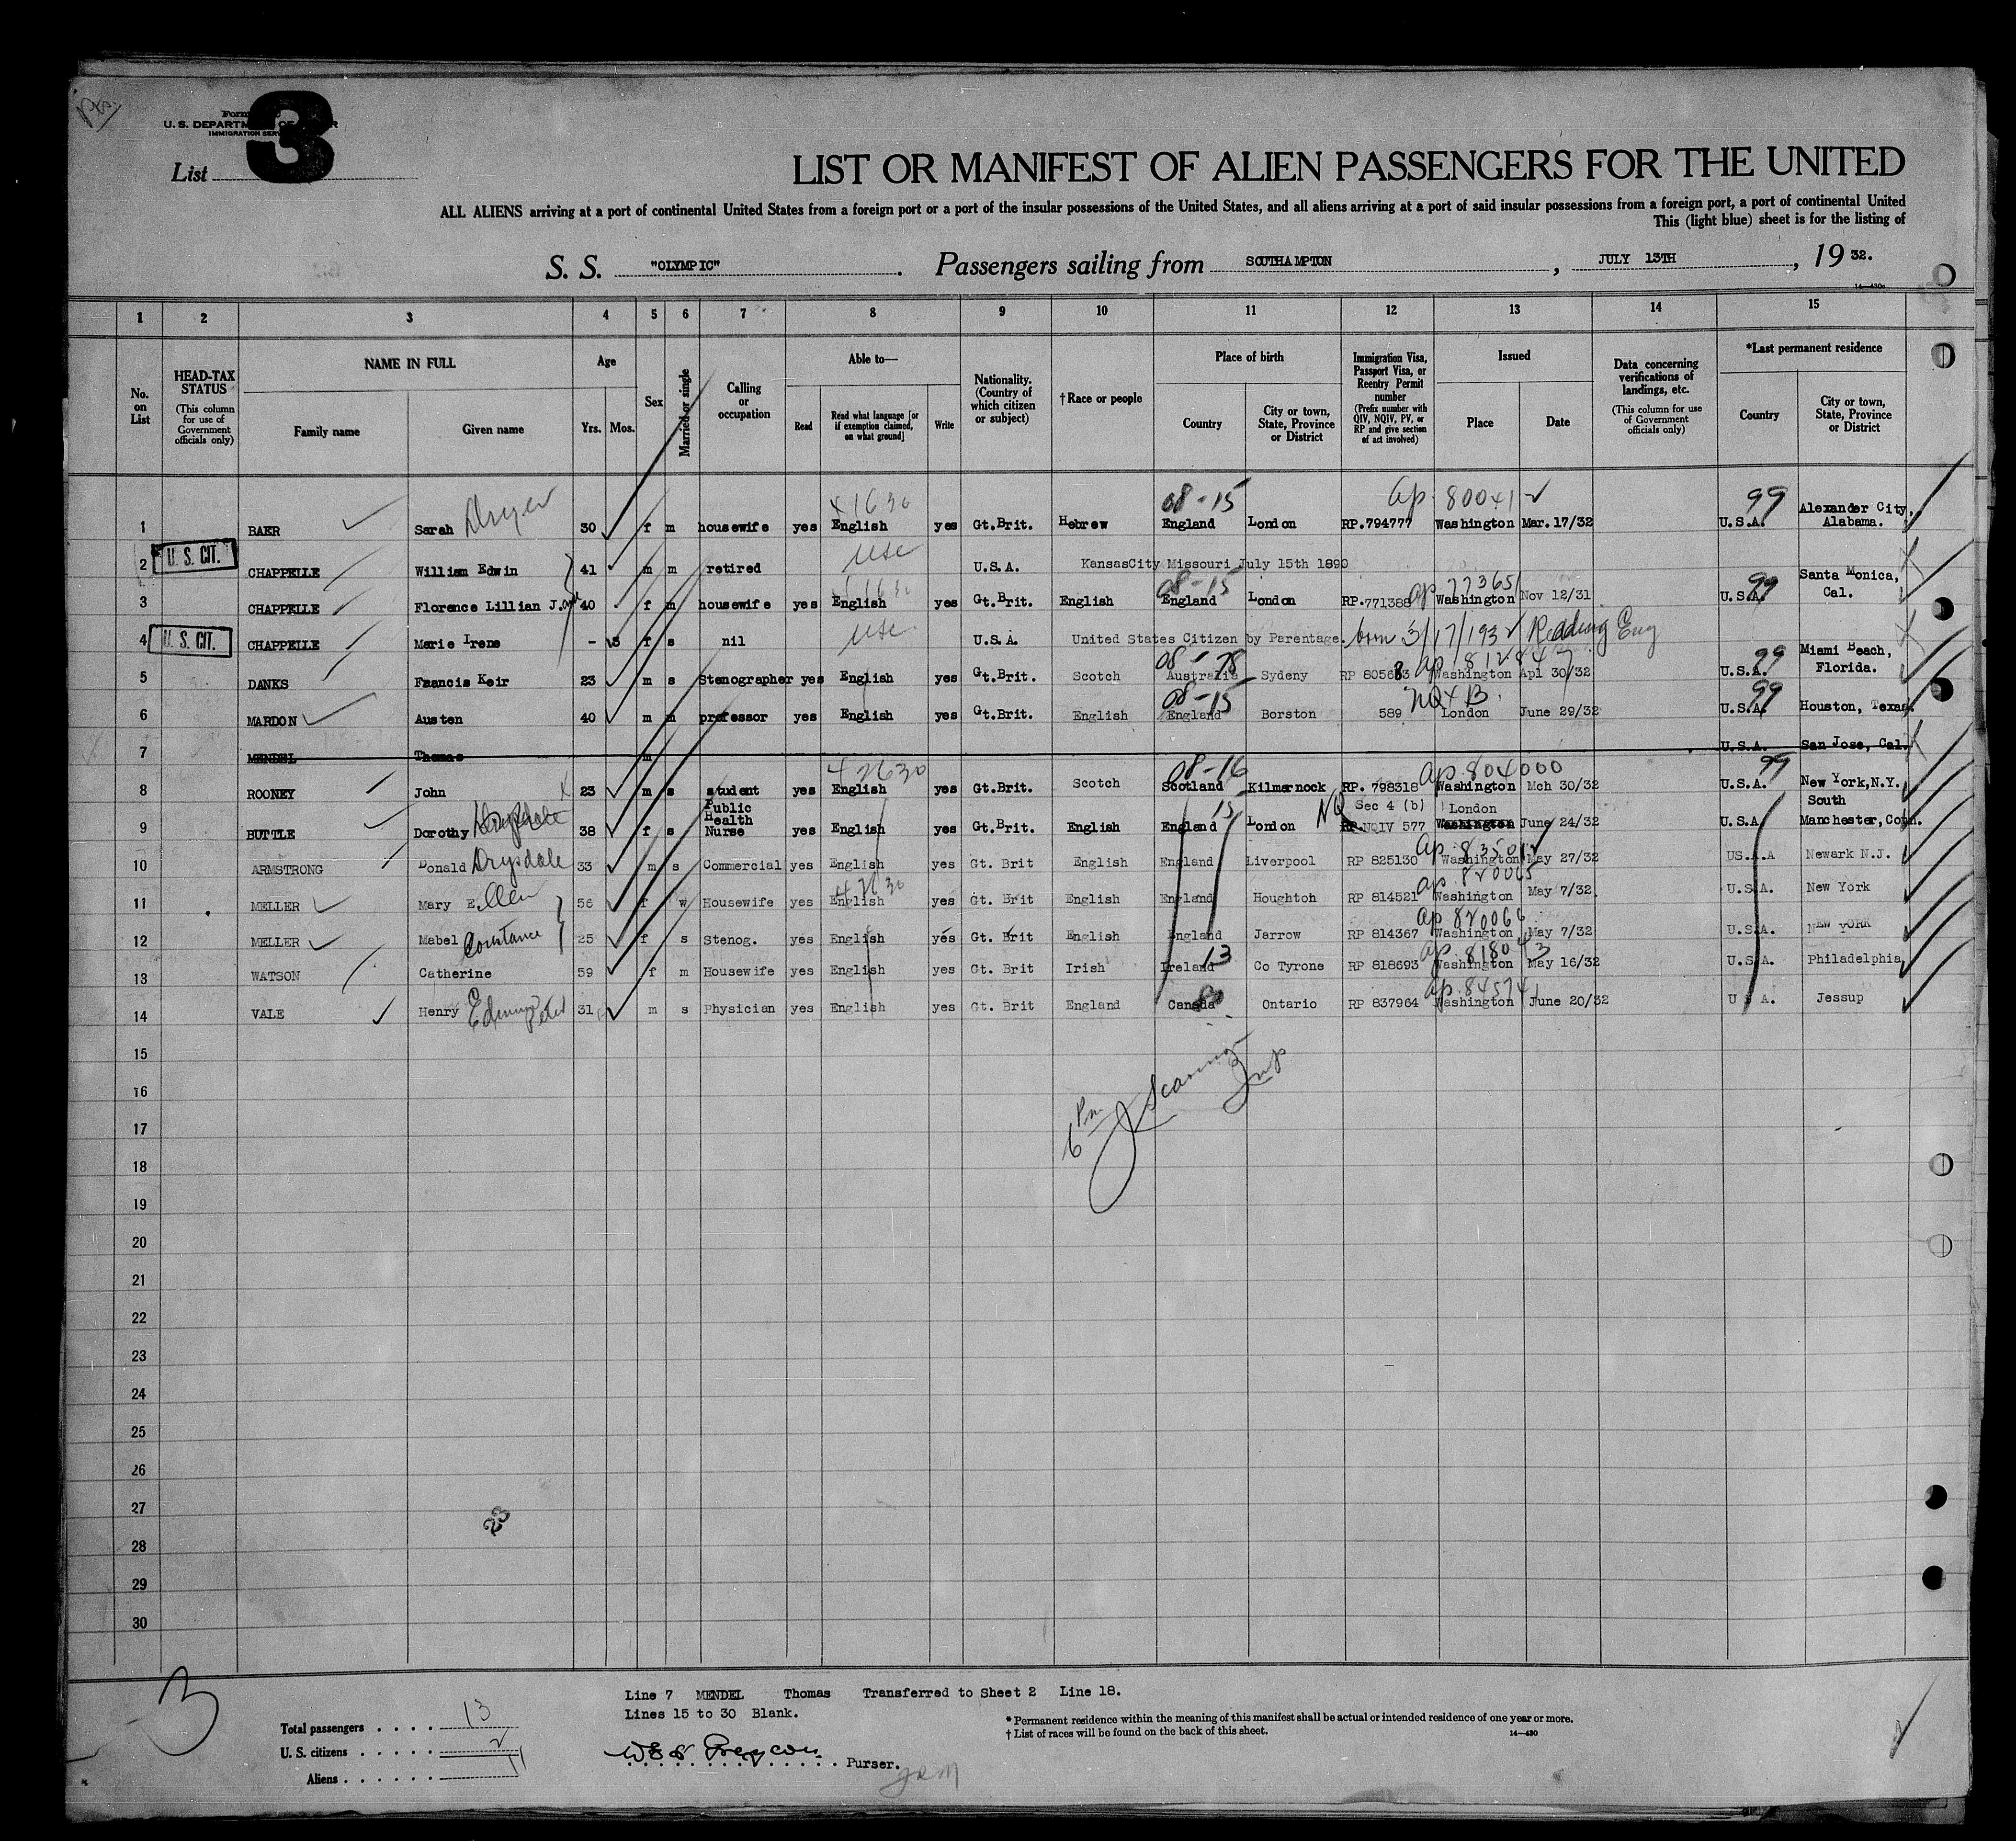 3
Form
U. S. DEPARTM OF R
IMMIGRATION SERV
List
LIST OR MANIFEST OF ALIEN PASSENGERS FOR THE UNITED
ALL ALIENS arriving at a port of continental United States from a foreign port or a port of the insular possessions of the United States, and all aliens arriving at a port of said insular possessions from a foreign port, a port of continental United
This (light blue) sheet is for the listing of
S. S. "OLYMPIC". Passengers sailing from SOUTHAMPTON, JULY 13TH, 19 32.
1 2 3 4 5 6 7 8 9 10 11 12 13 14 15
No. on List
HEAD-TAX STATUS (This column for use of Government officials only)
NAME IN FULL Family name Given name
Age Yrs. Mos.
Sex
Married or single
Calling or occupation
Able to— Read Read what language [or if exemption claimed, on what ground] Write
Nationality. (Country of which citizen or subject)
† Race or people
Place of birth Country City or town, State, Province or District
Immigration Visa, Passport Visa, or Reentry Permit number (Prefix number with QIV, NQIV, PV, or RP and give section of act involved)
Issued Place Date
Data concerning verifications of landings, etc. (This column for use of Government officials only)
*Last permanent residence Country City or town, State, Province or District
1 BAER Sarah Dryer 30 f m housewife yes English yes Gt.Brit. Hebrew 08-15 England London RP.794777 ap. 80041 Washington Mar. 17/32 99 U.S.A. Alexander City, Alabama.
2 U. S. CIT. CHAPPELLE William Edwin 41 m m retired USC U.S.A. KansasCity Missouri July 15th 1890
3 CHAPPELLE Florence Lillian J. 40 f m housewife yes English yes Gt.Brit. English 08-15 England London RP.771388 ap 773651 Washington Nov 12/31 99 U.S.A. Santa Monica, Cal.
4 U. S. CIT. CHAPPELLE Marie Irene - f s nil USC U.S.A. United States Citizen by Parentage. born 3/17/193 Redding Eng
5 DANKS Francis Keir 23 m s Stenographer yes English yes Gt.Brit. Scotch 08-78 Australia Sydeny RP 805683 ap 812847 Washington Apl 30/32 99 U.S.A. Miami Beach, Florida.
6 MARDON Austen 40 m m professor yes English yes Gt.Brit. English 08-15 England Borston 589 London June 29/32 99 U.S.A. Houston, Texas.
7 MENDEL Thomas m U.S.A. San Jose, Cal.
8 ROONEY John 23 m s student yes 42630 English yes Gt.Brit. Scotch 08-16 Scotland Kilmarnock RP. 798318 ap 804000 Washington Mch 30/32 99 U.S.A. New York,N.Y.
9 BUTTLE Dorothy Drysdale 38 f s Public Health Nurse yes English yes Gt.Brit. English 15 England London NQ Sec 4 (b) RP. NQIV 577 London Washington June 24/32 U.S.A. South Manchester, Conn.
10 ARMSTRONG Donald Drysdale 33 m s Commercial yes English yes Gt. Brit English England Liverpool RP 825130 Washington May 27/32 US.A.A Newark N.J.
11 MELLER Mary Ellen 56 f w Housewife yes English yes Gt. Brit English England Houghtoh RP 814521 ap 820065 Washington May 7/32. U.S.A. New York
12 MELLER Mabel Constance 25 f s Stenog. yes English yes Gt. Brit English England Jarrow RP 814367 ap 820066 Washington May 7/32 U.S.A. NEW YORK
13 WATSON Catherine 59 f m Housewife yes English yes Gt. Brit Irish 13 Ireland Co Tyrone RP 818693 ap 818043 Washington May 16/32 U.S.A. Philadelphia
14 VALE Henry Edmund Peter 31 m s Physician yes English yes Gt. Brit England Canada Ontario RP 837964 ap. 845741 Washington June 20/32 U S A. Jessup
15
16
17
18
19
20
21
22
23
24
25
26
27
28
29
30
6 Pm
23
3
Line 7 MENDEL Thomas Transferred to Sheet 2 Line 18.
Lines 15 to 30 Blank.
Total passengers 13
U. S. citizens 2
Aliens 11
Purser.
* Permanent residence within the meaning of this manifest shall be actual or intended residence of one year or more.
† List of races will be found on the back of this sheet.
14—430